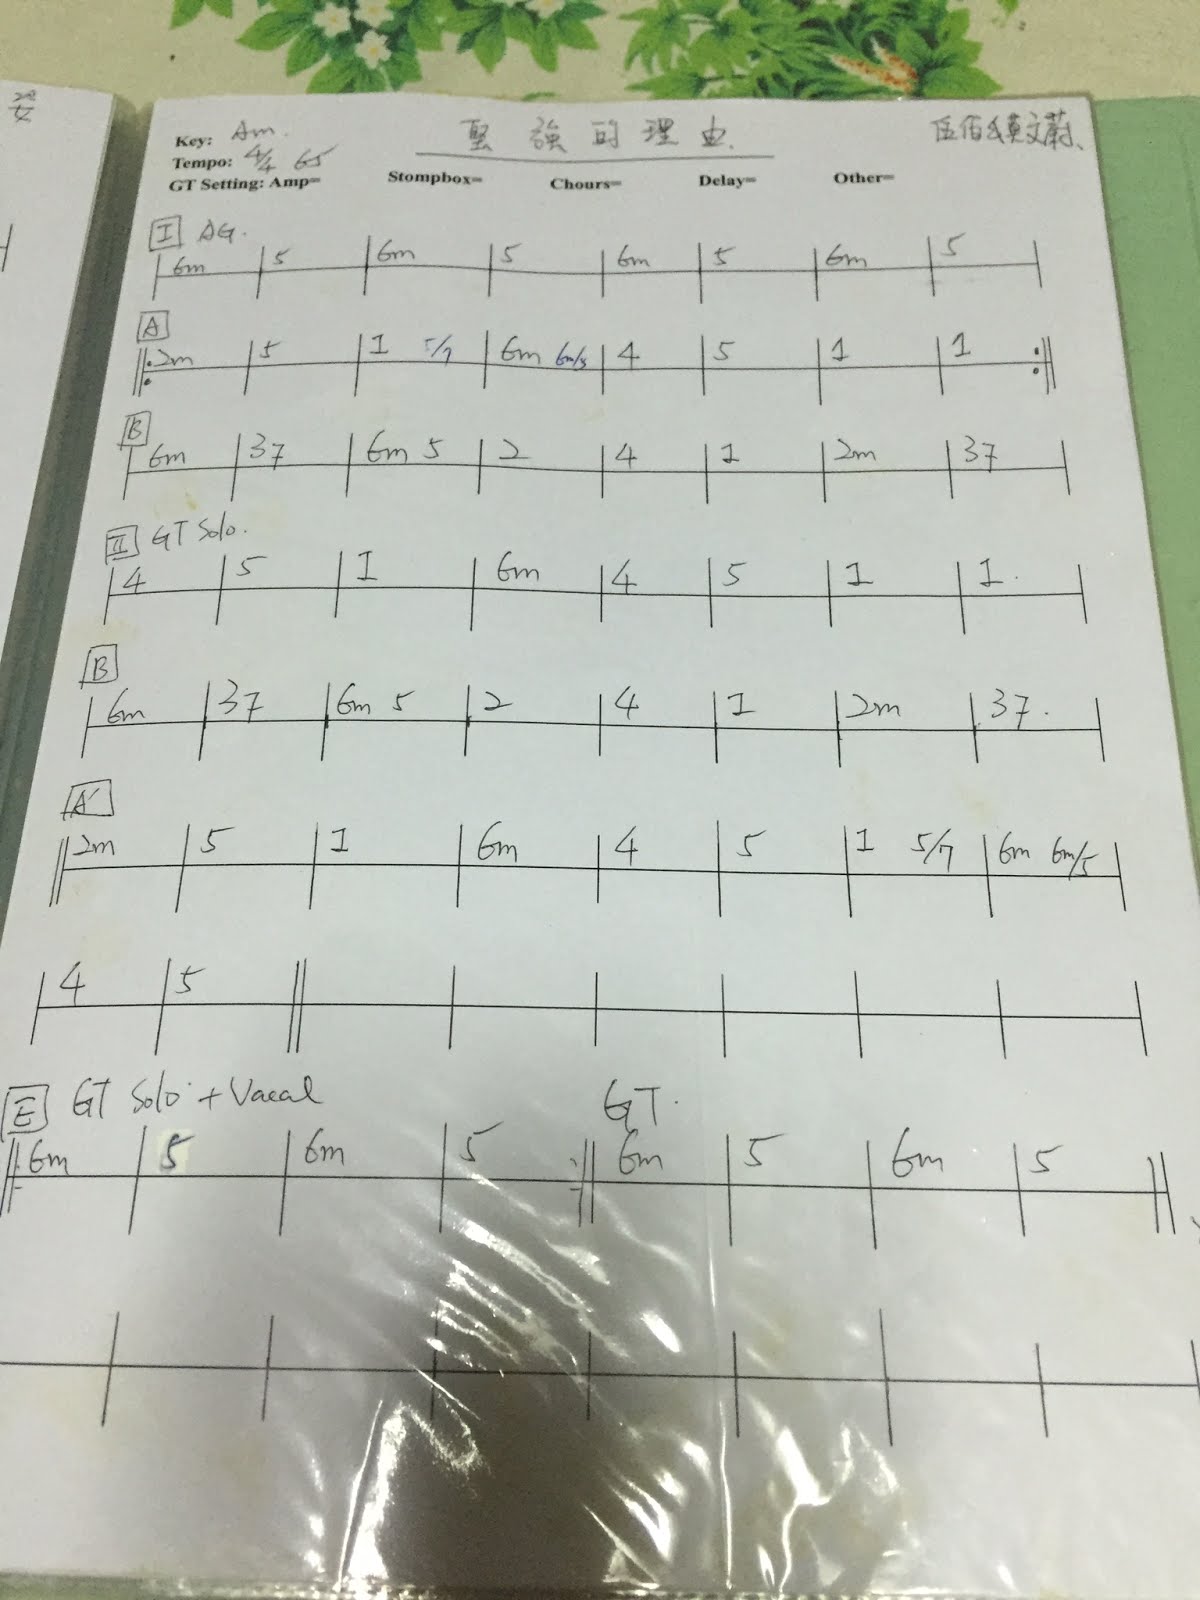 Key: Am.
堅強的理由
伍佰&莫文蔚
Tempo: 4/4 65
GT Setting: Amp= Stompbox= Chours= Delay= Other=
I AG.
6m 5 6m 5 6m 5 6m 5
A
2m 5 1 5/7 6m 6m/5 4 5 1 1
B
6m 37 6m 5 2 4 1 2m 37
II GT Solo.
4 5 1 6m 4 5 1 1.
B
6m 37 6m 5 2 4 1 2m 37.
A'
2m 5 1 6m 4 5 1 5/7 6m 6m/5
4 5
E GT Solo + Vacal GT.
6m 5 6m 5 6m 5 6m 5